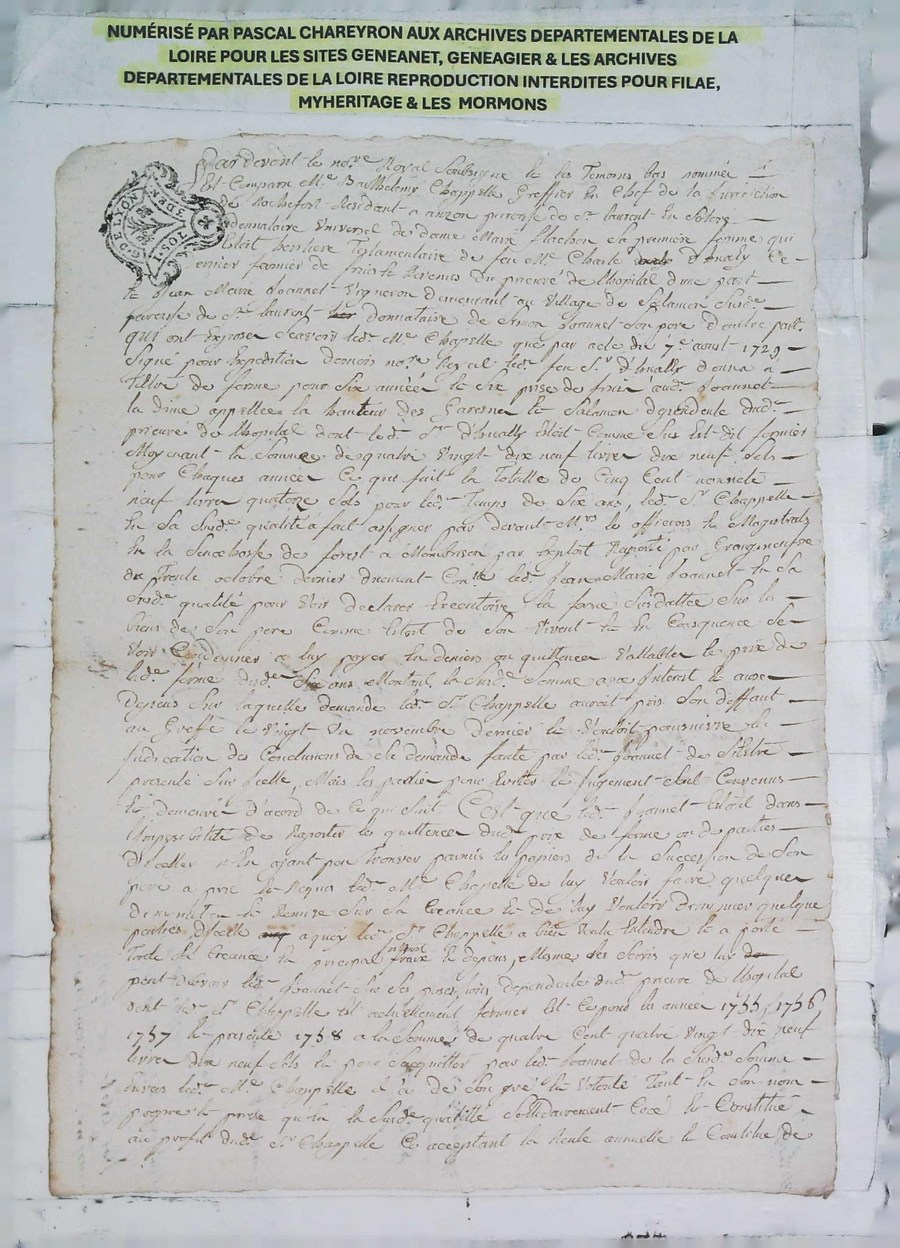 NUMÉRISÉ PAR PASCAL CHAREYRON AUX ARCHIVES DEPARTEMENTALES DE LA
LOIRE POUR LES SITES GENEANET, GENEAGIER & LES ARCHIVES
DEPARTEMENTALES DE LA LOIRE REPRODUCTION INTERDITES POUR FILAE,
MYHERITAGE & LES MORMONS
G. DE LYON
DEUX
SOLS
Pardevant le nore Royal Soubsigné et les Temoins bas nommés
Est Comparu Me Barthelemy Chappelle Greffier en Chef de la Jurisdiction
de Rochefort Résidant a paroisse de St laurent En Solore
donnataire Universel de dame Marie flachon sa première femme qui
Etoit heritiere Testamentaire de feu Me Charle d'Onally
dernier fermier de Revenus du prieuré de l'hopital d'une part
Et Jean Marie Joannet Vigneron demeurant au Village de Salamon Susde
paroisse de St laurent donnataire de Joannet Son pere D'autre part
qui ont Exposer Scavoir ledt Me Chapelle que par acte du 7e aoust 1729
Signé pour Expedition nore Royal ledt feu Sr d'Onally donna a
Tiltre de ferme pour Six années le prise de audt Joannet
la dime appellée la hauteur des et Salamon dependente dudt
prieuré de l'hopital dont ledt Sr d'Onally Etoit Comme Dit fermier
Moyenant la Somme de quatre Vingt dix neuf livres dix neuf Sols
pour Chaques année Ce qui fait la Totalle de Cinq Cent nonnete
neuf livres quatorze Sols pour ledt Temps de Six ans, ledt Sr Chappelle
En Sa Susde qualité a fait assigner par devant Mrs les officiers et Magistrats
En la Senechaussé de forest a Montbrison par Exploit Raporté par Grangeneufve
du Trente octobre dernier ledt Jean Marie Joannet En Sa
Susde qualité pour Voir declarer Executoire la ferme Susdattée Sur les
biens de Son pere Comme Etoit de Son Vivent Et En Consquence Se
Voir Condemner a luy payer En deniers ou quittances Vallables le prix de
lade ferme dudt Six ans Montant la Susde Somme avec Interest Et
Depens Sur laquelle demande ledt Sr Chappelle auroit pris Son deffaut
au Greffe le Vingt Un novembre dernier Et Vouloit poursuivre
judication des Conclusions de Sa demande faute par ledt Joannet de S'Estre
presenté Sur Icelle, Mais les parties pour Eviter le Jugement Sont Convenus
Et demeuré d'acord de Ce qui Suit C'est que ledt Joannet Etoit dans
l'Imposibilité de Raporter les quittences dudt prix de ferme ou de parties
D'Icelles n'En ayant peu Trouver parmis les papiers de la Succession de Son
pere a prié Et Requis ledt Me Chapelle de luy Vouloir faire quelques
diminution et Remise Sur Sa Creance Et de luy Vouloir quelque
parties D'Icelle a quoy ledt Sr Chappelle a bien Voulu Entendre Et a porté
Toute Sa Creance En principal Interest fraix Et depens, Mesme des Servis que luy
peut devoir ledt Joannet Sur Ses dependente dudt prieuré de l'hopital
dont ledt Sr Chappelle Est actuellement fermier Et Ce pour les année 1755, 1756
1757 Et presente 1758 a la Somme de quatre Cent quatre Vingt dix neuf
livres dix neuf Sols Et pour S'acquitter par ledt Joannet de la Susde Somme
Envers ledt Me Chappelle Il a de Son gré Et Volonté Tant En Son nom
propre Et privé qu'En la Susde qualitté Sollidairement Créé Et Constitué
au profit dudt Sr Chappelle Ce acceptant la Rente annuelle Et Constituée de